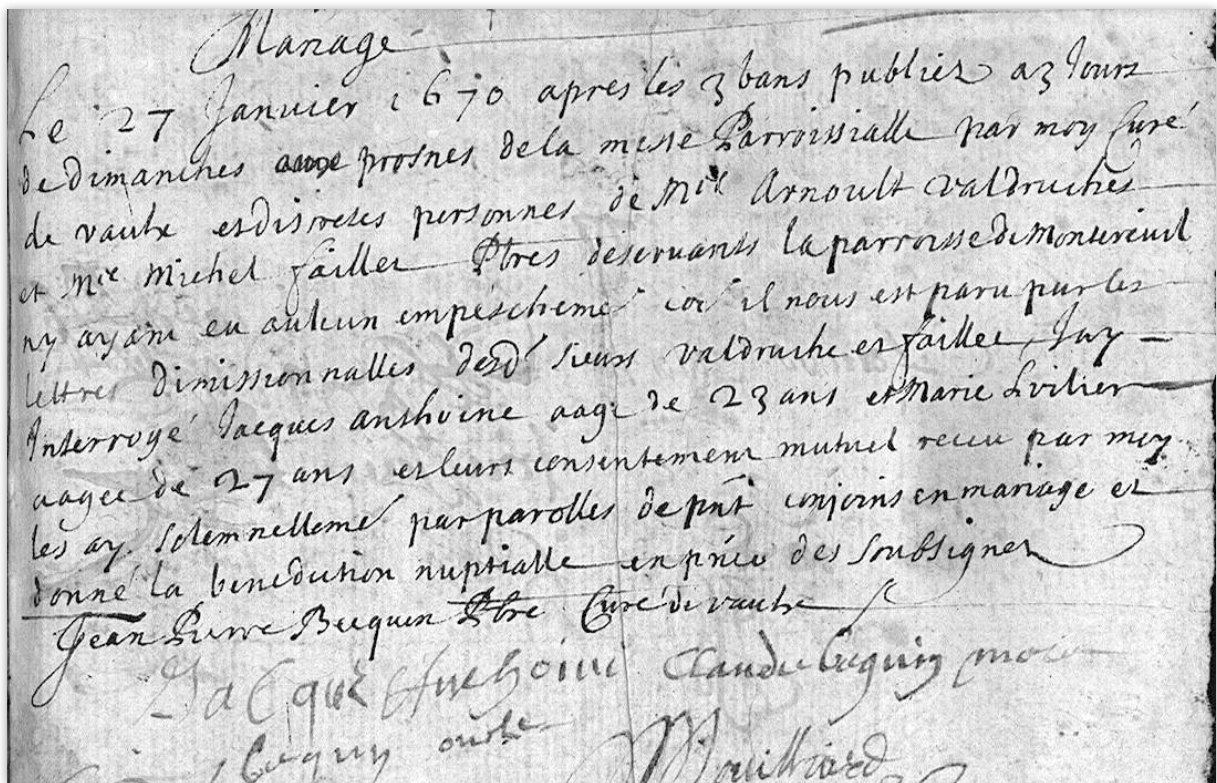 Mariage
Le 27 Janvier 1670 apres les 3 bans publiez a 3 Jours
de dimanches aux prosnes de la messe Parroissialle par moy Curé
de vaulx et discretes personnes de Mre Arnoult Valdruches
et Mre Michel faillee Pbres deservants la parroisse de Montereuil
ny ayant eu aulcun empeschemẽ coẽ il nous est paru par les
lettres dimissionnalles desd. sieurs valdruche et faillee, Jay
Interrogé Jacques Anthoine aage de 23 ans et Marie
aagee de 27 ans et leurs consentement mutuel receu par moy
les ay solemnellemẽ par parolles de pñt conjoins en mariage et
donné la benediction nuptialle en pñce des soubsignez
Jean Pierre Becquen Pbre Curé de vaulx
Jacque Anthoine Claude
Mouilliard